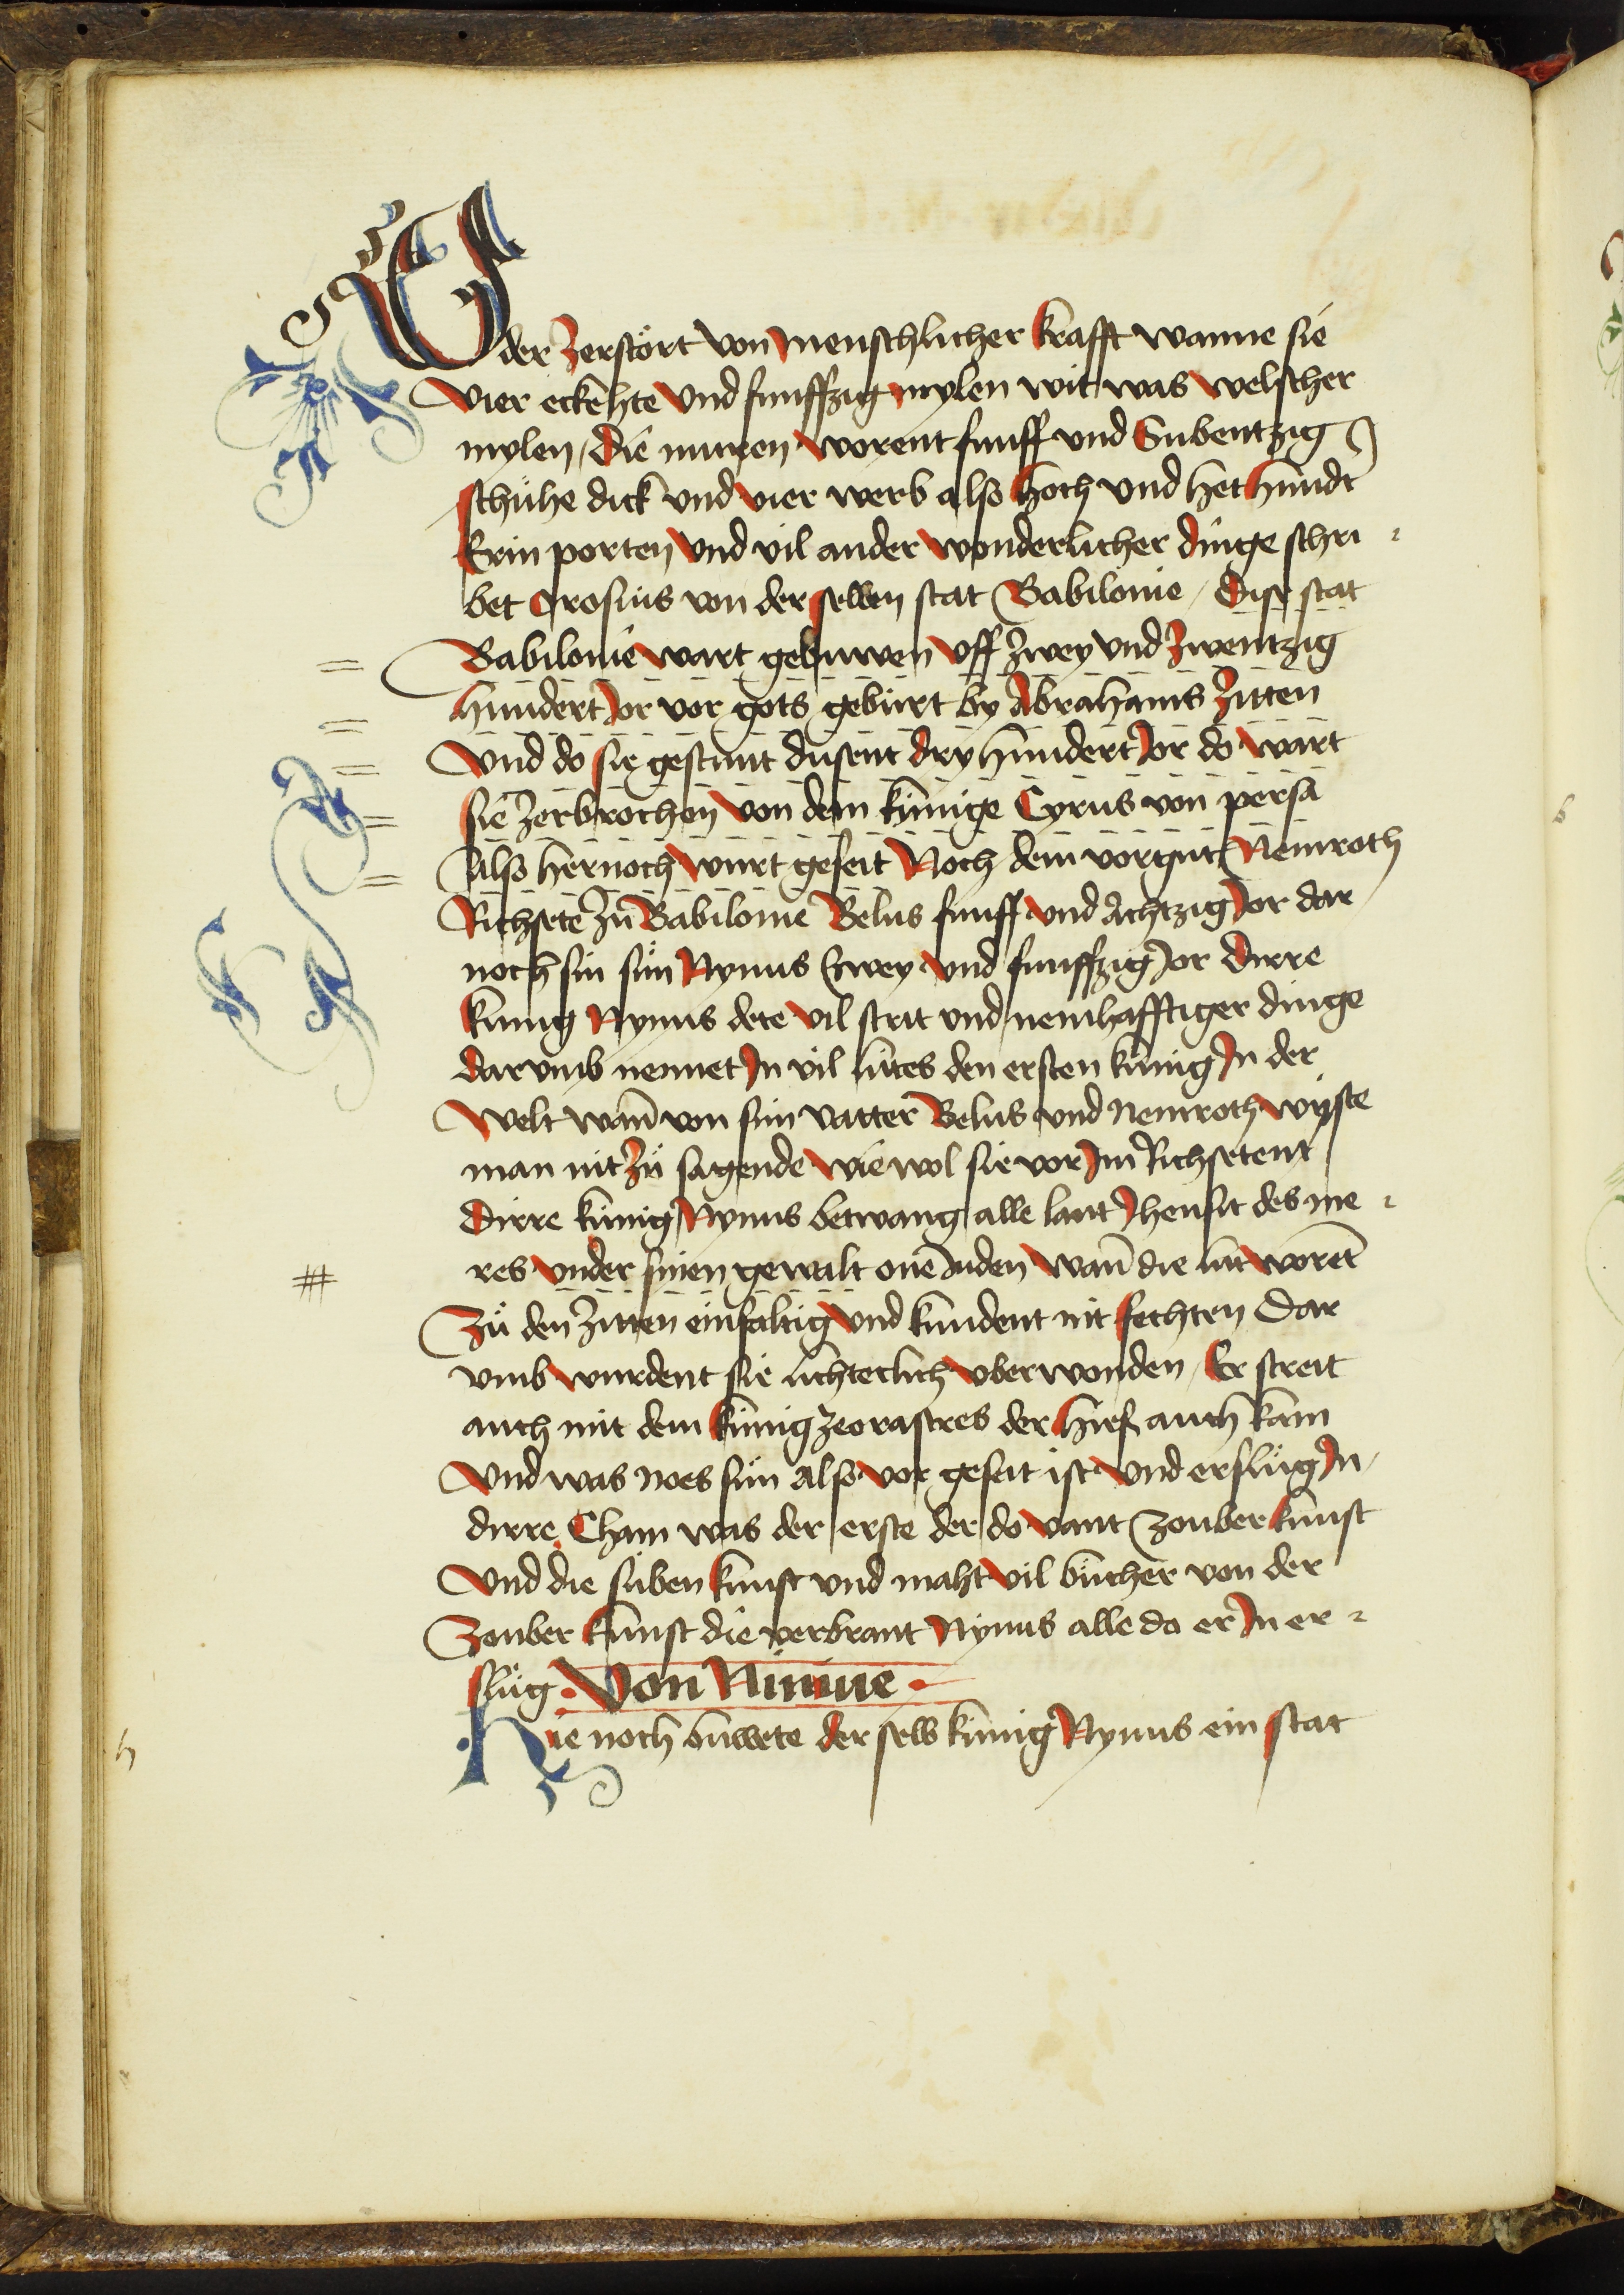 Oder Zerstört von menschlicher krafft wanne sie
vier eckehte vnd funffzig mylen wit was welscher
mylen / die muren worent funff vnd Subentzig
schühe dick vnd vier werb also hoch vnd het hundt
Erin porten vnd vil ander wonderlicher dinge schri
bet Orosius von der selben stat Babilonie / dise stat
Babilonie wart gebuwen vff zwey vnd zwentzig
hundert Jor vor gots geburt by Abrahams Zitten
vnd do sie gestunt dusent dryhundert Jor do wart
sie zerbrochen von dem künige Cyrus von persa
also hernoch wurt geseit Noch dem vorgnt Nemroth
Richsete zü Babilonie Belus funff vnd Achtzig Jor dar
noch sin sün Nynus Zwey vnd funffzig Jor dirre
kunig Nynus dete vil strit vnd nemhafftiger dinge
darvmb nennet In vil lutes den ersten künig In der
welt wañ von sim vatter Belus vnd Nemroth wyste
man nit zü sagende wie wol sie vor Im Richsetent
dirre künig Nynus betwang alle lant Jhensit des me
res vnder sinen gewalt one Inden wañ die lüt woret̄
Zü den Zitten einfaltig vnd kundent nit fechten Dar
vmb wurdent sie lichterlich vberwonden / Er streit
auch mit dem künig zeorastres der hieß auch kam
vnd was noes sün Also vor geseit ist vnd erslüg In
dirre Cham was der erste der do vant zouber kunst
vnd die süben kunst vnd maht vil bücher von der
Zouber kunst die verbrant Nynus alle do er In er
slüg. Von Niniue.
Hie noch buwete der selb künig Nynus ein stat
h